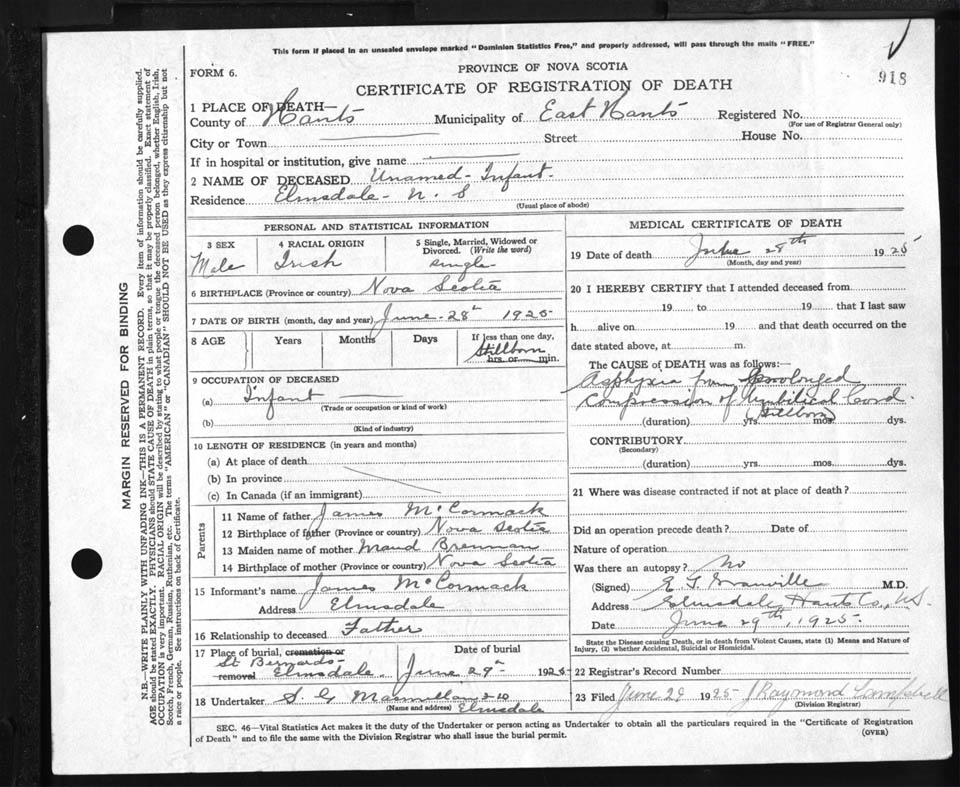 This form if placed in an unsealed envelope marked "Dominion Statistics Free," and properly addressed, will pass through the mails "FREE."
918
FORM 6.
PROVINCE OF NOVA SCOTIA
CERTIFICATE OF REGISTRATION OF DEATH
1 PLACE OF DEATH—
County of Hants Municipality of East Hants Registered No.
(For use of Registrar General only)
City or Town Street House No.
If in hospital or institution, give name
2 NAME OF DECEASED Unamed- Infant-
Residence Elmsdale- N. S
(Usual place of abode)
PERSONAL AND STATISTICAL INFORMATION
3 SEX 4 RACIAL ORIGIN 5 Single, Married, Widowed or Divorced. (Write the word)
Male Irish single
6 BIRTHPLACE (Province or country) Nova Scotia
7 DATE OF BIRTH (month, day and year) June- 28th 1925
8 AGE Years Months Days If less than one day,
Stillborn
hrs. or min.
9 OCCUPATION OF DECEASED
(a) Infant
(Trade or occupation or kind of work)
(b)
(Kind of industry)
10 LENGTH OF RESIDENCE (in years and months)
(a) At place of death
(b) In province
(c) In Canada (if an immigrant)
Parents
11 Name of father James McCormack
12 Birthplace of father (Province or country) Nova Scotia
13 Maiden name of mother Maud Brennan
14 Birthplace of mother (Province or country) Nova Scotia
15 Informant's name James McCormack
Address Elmsdale
16 Relationship to deceased Father
17 Place of burial, cremation or Date of burial
St Bernards-
removal Elmsdale. June 29th 1925
18 Undertaker S. G Macmillan
(Name and address) Elmsdale
MEDICAL CERTIFICATE OF DEATH
19 Date of death June 28th 1925
(Month, day and year)
20 I HEREBY CERTIFY that I attended deceased from
19 to 19 that I last saw
h alive on 19 and that death occurred on the
date stated above, at m.
The CAUSE of DEATH was as follows:—
Asphyxia from prolonged
Compression of Umbilical Cord.
Stillborn
(duration) yrs. mos. dys.
CONTRIBUTORY
(Secondary)
(duration) yrs. mos. dys.
21 Where was disease contracted if not at place of death?
Did an operation precede death? Date of
Nature of operation
Was there an autopsy? No
(Signed) Granville M.D.
Address Elmsdale, Hants Co., N.S.
Date June 29th, 1925-
State the Disease causing Death, or in death from Violent Causes, state (1) Means and Nature of
Injury, (2) whether Accidental, Suicidal or Homicidal.
22 Registrar's Record Number
23 Filed June 29 1925- J Raymond Campbell
(Division Registrar)
SEC. 46—Vital Statistics Act makes it the duty of the Undertaker or person acting as Undertaker to obtain all the particulars required in the "Certificate of Registration
of Death" and to file the same with the Division Registrar who shall issue the burial permit.
(OVER)
MARGIN RESERVED FOR BINDING
N.B.—WRITE PLAINLY WITH UNFADING INK—THIS IS A PERMANENT RECORD. Every item of information should be carefully supplied.
AGE should be stated EXACTLY. PHYSICIANS should STATE CAUSE OF DEATH in plain terms, so that it may be properly classified. Exact statement of
OCCUPATION is very important. RACIAL ORIGIN will be described by stating to what people or tongue the deceased person belonged, whether English, Irish,
Scotch, French, German, Russian, Ruthenian, etc. The terms "AMERICAN" or "CANADIAN" SHOULD NOT BE USED as they express citizenship but not
a race or people. See instructions on back of Certificate.